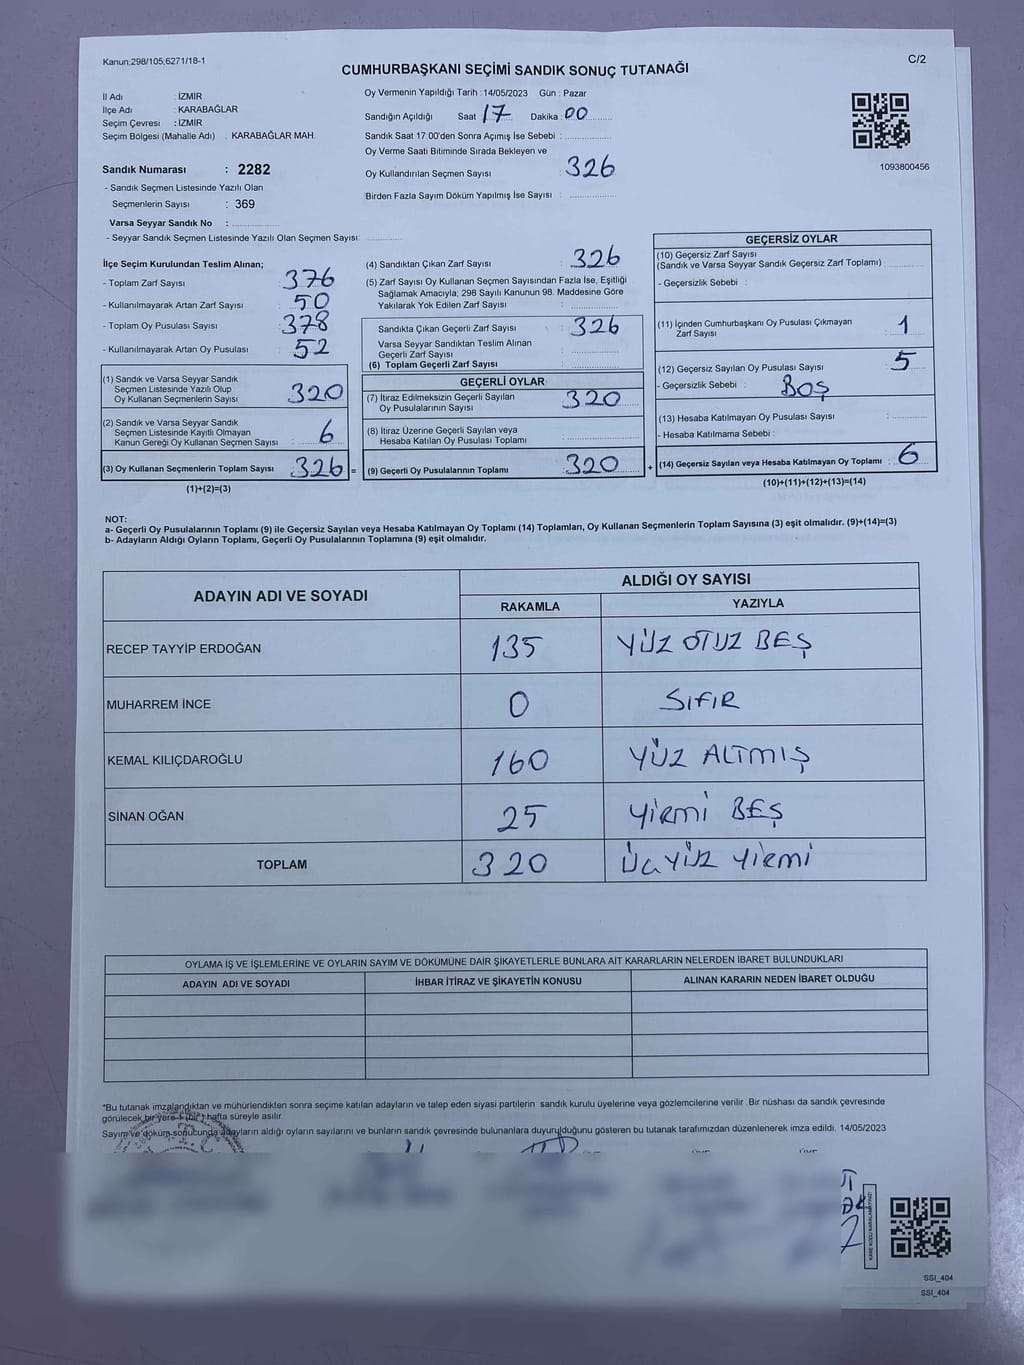 Kanun;298/105;6271/18-1
C/2
CUMHURBAŞKANI SEÇİMİ SANDIK SONUÇ TUTANAĞI
İl Adı : İZMİR
İlçe Adı : KARABAĞLAR
Seçim Çevresi : İZMİR
Seçim Bölgesi (Mahalle Adı) : KARABAĞLAR MAH.
Sandık Numarası : 2282
- Sandık Seçmen Listesinde Yazılı Olan
Seçmenlerin Sayısı : 369
Varsa Seyyar Sandık No :
- Seyyar Sandık Seçmen Listesinde Yazılı Olan Seçmen Sayısı:
Oy Vermenin Yapıldığı Tarih :14/05/2023 Gün : Pazar
Sandığın Açıldığı Saat 17 Dakika : 00
Sandık Saat 17:00'den Sonra Açımış İse Sebebi :
Oy Verme Saati Bitiminde Sırada Bekleyen ve
Oy Kullandırılan Seçmen Sayısı : 326
Birden Fazla Sayım Döküm Yapılmış İse Sayısı :
1093800456
İlçe Seçim Kurulundan Teslim Alınan;
- Toplam Zarf Sayısı : 376
- Kullanılmayarak Artan Zarf Sayısı : 50
- Toplam Oy Pusulası Sayısı : 378
- Kullanılmayarak Artan Oy Pusulası : 52
(1) Sandık ve Varsa Seyyar Sandık
Seçmen Listesinde Yazılı Olup
Oy Kullanan Seçmenlerin Sayısı : 320
(2) Sandık ve Varsa Seyyar Sandık
Seçmen Listesinde Kayıtlı Olmayan
Kanun Gereği Oy Kullanan Seçmen Sayısı : 6
(3) Oy Kullanan Seçmenlerin Toplam Sayısı : 326 =
(1)+(2)=(3)
(4) Sandıktan Çıkan Zarf Sayısı : 326
(5) Zarf Sayısı Oy Kullanan Seçmen Sayısından Fazla İse, Eşitliği
Sağlamak Amacıyla; 298 Sayılı Kanunun 98. Maddesine Göre
Yakılarak Yok Edilen Zarf Sayısı :
Sandıkta Çıkan Geçerli Zarf Sayısı : 326
Varsa Seyyar Sandıktan Teslim Alınan
Geçerli Zarf Sayısı :
(6) Toplam Geçerli Zarf Sayısı :
GEÇERLİ OYLAR
(7) İtiraz Edilmeksizin Geçerli Sayılan
Oy Pusulalarının Sayısı : 320
(8) İtiraz Üzerine Geçerli Sayılan veya
Hesaba Katılan Oy Pusulası Toplamı :
(9) Geçerli Oy Pusulalarının Toplamı : 320 +
GEÇERSİZ OYLAR
(10) Geçersiz Zarf Sayısı
(Sandık ve Varsa Seyyar Sandık Geçersiz Zarf Toplamı) :
- Geçersizlik Sebebi :
(11) İçinden Cumhurbaşkanı Oy Pusulası Çıkmayan
Zarf Sayısı : 1
(12) Geçersiz Sayılan Oy Pusulası Sayısı : 5
- Geçersizlik Sebebi : BOŞ
(13) Hesaba Katılmayan Oy Pusulası Sayısı :
- Hesaba Katılmama Sebebi :
(14) Geçersiz Sayılan veya Hesaba Katılmayan Oy Toplamı : 6
(10)+(11)+(12)+(13)=(14)
NOT:
a- Geçerli Oy Pusulalarının Toplamı (9) ile Geçersiz Sayılan veya Hesaba Katılmayan Oy Toplamı (14) Toplamları, Oy Kullanan Seçmenlerin Toplam Sayısına (3) eşit olmalıdır. (9)+(14)=(3)
b- Adayların Aldığı Oyların Toplamı, Geçerli Oy Pusulalarının Toplamına (9) eşit olmalıdır.
ADAYIN ADI VE SOYADI
ALDIĞI OY SAYISI
RAKAMLA YAZIYLA
RECEP TAYYİP ERDOĞAN 135 YÜZ OTUZ BEŞ
MUHARREM İNCE 0 SIFIR
KEMAL KILIÇDAROĞLU 160 YÜZ ALTMIŞ
SİNAN OĞAN 25 YİRMİ BEŞ
TOPLAM 320 ÜÇYÜZ YİRMİ
OYLAMA İŞ VE İŞLEMLERİNE VE OYLARIN SAYIM VE DÖKÜMÜNE DAİR ŞİKAYETLERLE BUNLARA AİT KARARLARIN NELERDEN İBARET BULUNDUKLARI
ADAYIN ADI VE SOYADI İHBAR İTİRAZ VE ŞİKAYETİN KONUSU ALINAN KARARIN NEDEN İBARET OLDUĞU
*Bu tutanak imzalandıktan ve mühürlendikten sonra seçime katılan adayların ve talep eden siyasi partilerin sandık kurulu üyelerine veya gözlemcilerine verilir .Bir nüshası da sandık çevresinde
görülecek bir yere 1 (bir ) hafta süreyle asılır.
Sayım ve döküm sonucunda adayların aldığı oyların sayılarını ve bunların sandık çevresinde bulunanlara duyurulduğunu gösteren bu tutanak tarafımızdan düzenlenerek imza edildi. 14/05/2023
KARE KODU KARALAMAYINIZ!
SSI_404
SSI_404